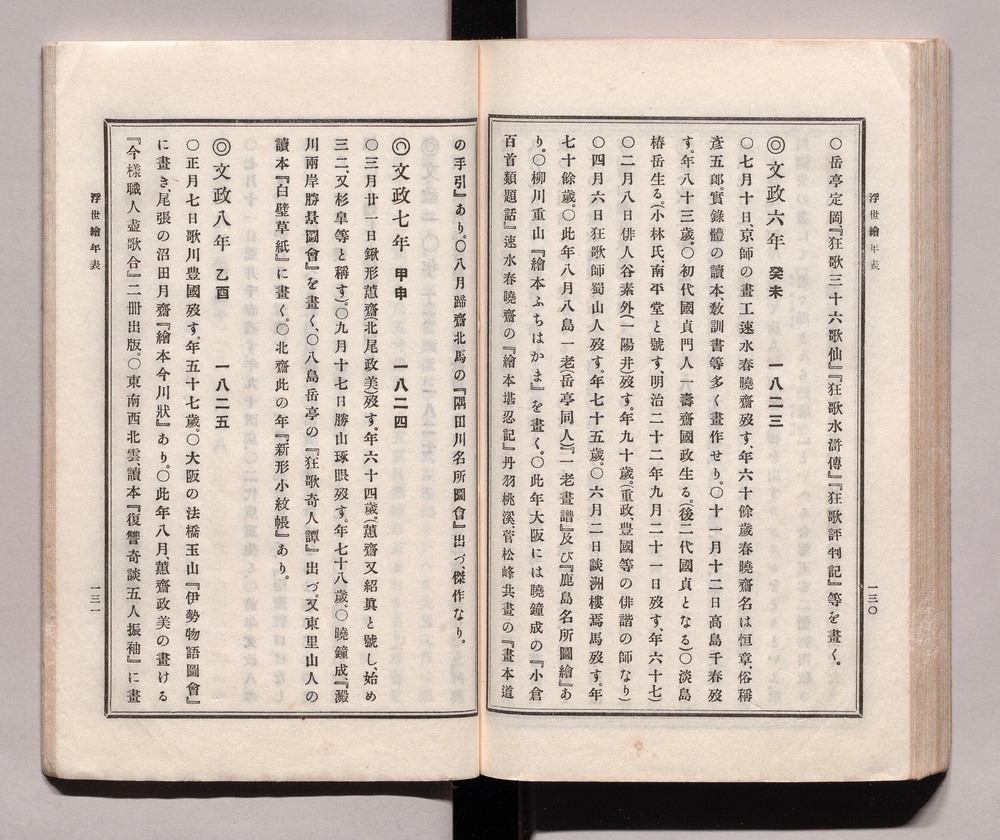 浮世繪年表
一三〇
〇岳亭定岡『狂歌三十六歌仙』『狂歌水滸傳』『狂歌評判記』等を畫く。
◎文政六年 癸未 一八二三
〇七月十日、京師の畫工速水春曉齋歿す、年六十餘歲春曉齋名は恒章、俗稱
彥五郎。實錄體の讀本、敎訓書等多く畫作せり。〇十一月十二日高島千春歿
す。年八十三歲。〇初代國貞門人一壽齋國政生る。(後二代國貞となる)〇淡島
椿岳生る。(小林氏、南平堂と號す、明治二十二年九月二十一日歿す、年六十七)
〇二月八日俳人谷素外(一陽井)歿す。年九十歲。(重政、豐國等の俳諧の師なり)
〇四月六日狂歌師蜀山人歿す。年七十五歲。〇六月二日談洲樓焉馬歿す。年
七十餘歲。〇此年八月八島一老(岳亭同人)『一老畫譜』及び『鹿島名所圖繪』あ
り。〇柳川重山『繪本ふぢはかま』を畫く。〇此年大阪には曉鐘成の『小倉
百首類題話』速水春曉齋の『繪本堪忍記』丹羽桃溪、菅松峰共畫の『畫本道
の手引』あり。〇八月蹄齋北馬の『隅田川名所圖會』出づ、傑作なり。
◎文政七年 甲申 一八二四
〇三月廿一日鍬形蕙齋(北尾政美)歿す。年六十四歲。(蕙齋又紹眞と號し、始め
三二、又杉皐等と稱す)。〇九月十七日勝山琢眼歿す。年七十八歲。〇曉鐘成『澱
川兩岸勝景圖會』を畫く、〇八島岳亭の『狂歌奇人譚』出づ。又東里山人の
讀本『白壁草紙』に畫く。〇北齋此の年『新形小紋帳』あり。
◎文政八年 乙酉 一八二五
〇正月七日歌川豐國歿す。年五十七歲。〇大阪の法橋玉山『伊勢物語圖會』
に畫き、尾張の沼田月齋『繪本今川狀』あり。〇此年八月、蕙齋政美の畫ける
『今樣職人盡歌合』二冊出版。〇東南西北雲讀本『復讐奇談五人振袖』に畫
浮世繪年表
一三一